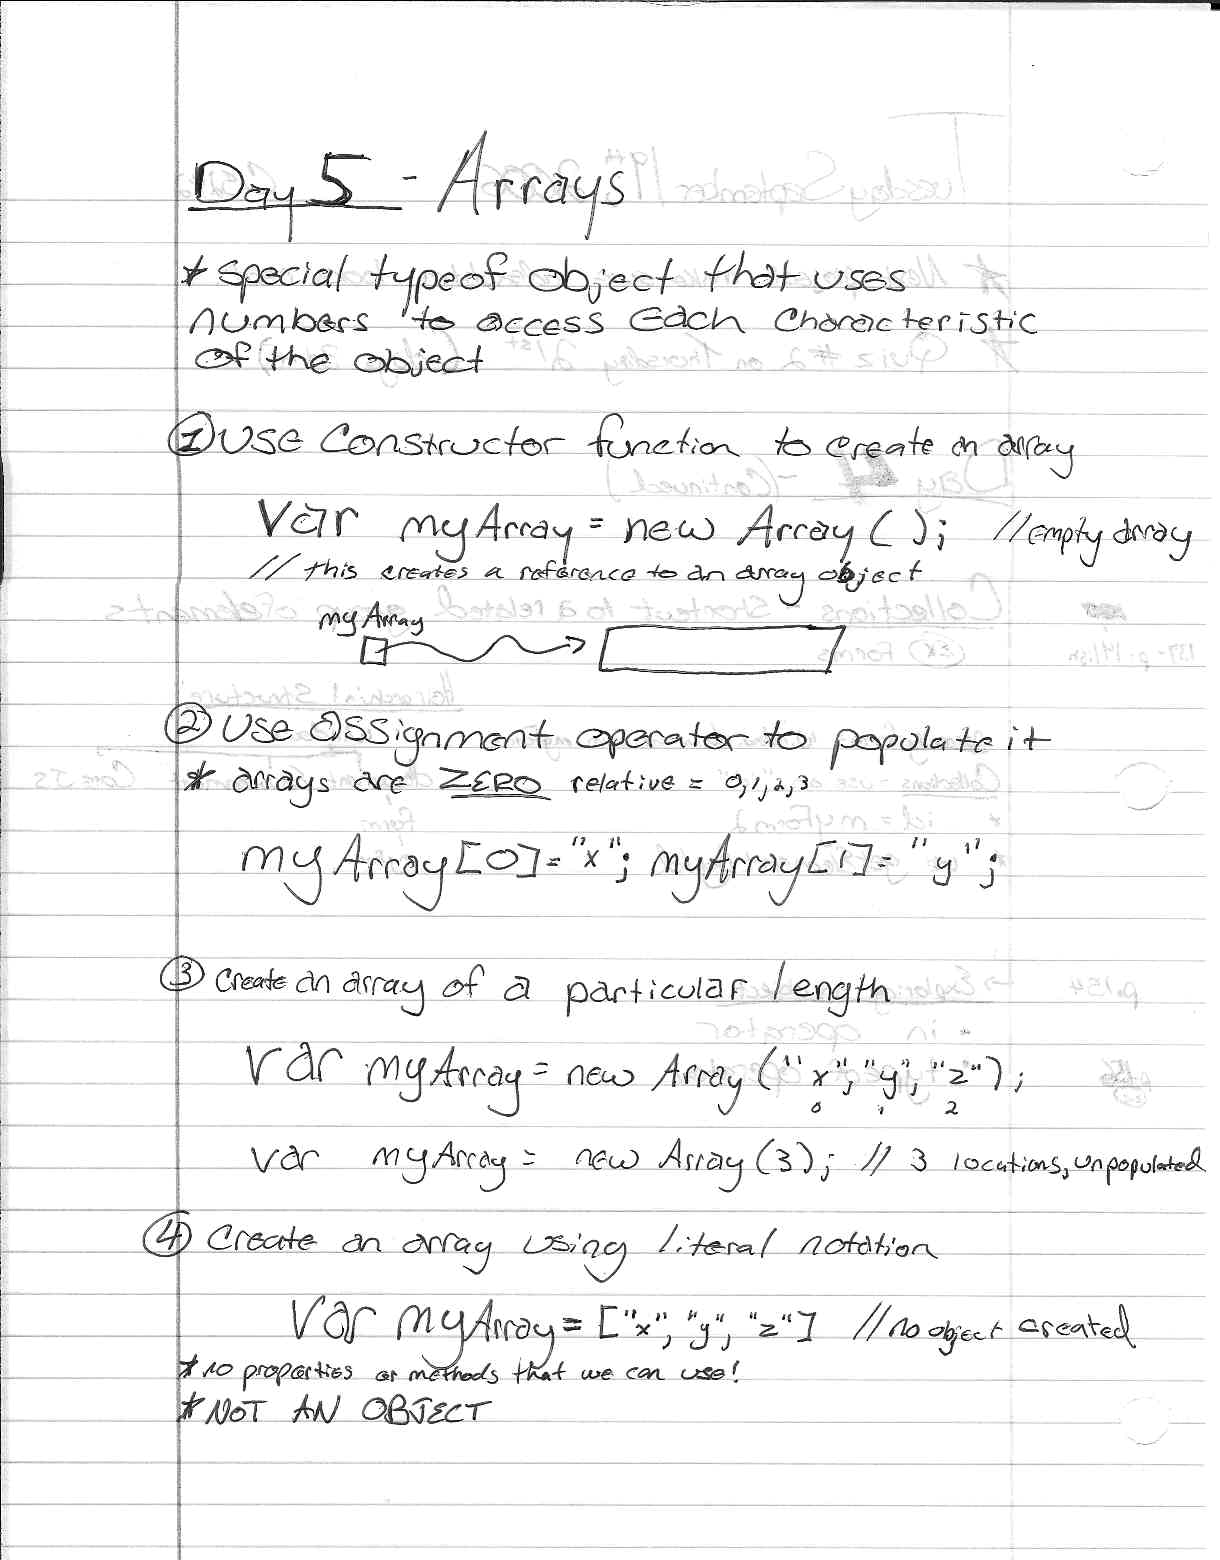 Day 5 - Arrays
* special typeof object that uses
numbers to access each characteristic
of the object
① Use constructor function to create an array
var myArray = new Array(); //empty array
// this creates a reference to an array object
myArray
② Use assignment operator to populate it
* arrays are ZERO relative = 0,1,2,3
myArray[0]="x"; myArray[1]="y";
③ Create an array of a particular length
var myArray = new Array("x","y","z");
0 1 2
var myArray = new Array(3); // 3 locations, unpopulated
④ Create an array using literal notation
var myArray = ["x","y","z"] //no object created
* no properties or methods that we can use!
* NOT AN OBJECT